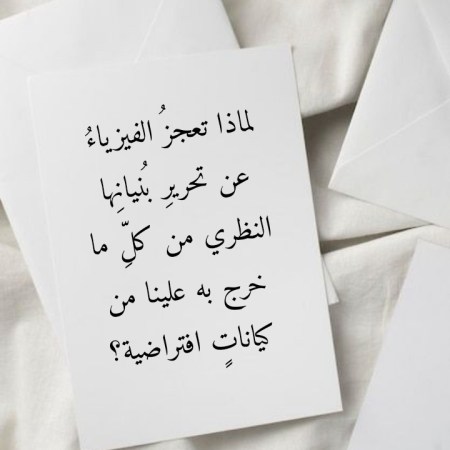 لماذا تعجزُ الفيزياءُ
عن تحريرِ بُنيانِها
النظري من كلِّ ما
خرج به علينا من
كياناتٍ افتراضية؟